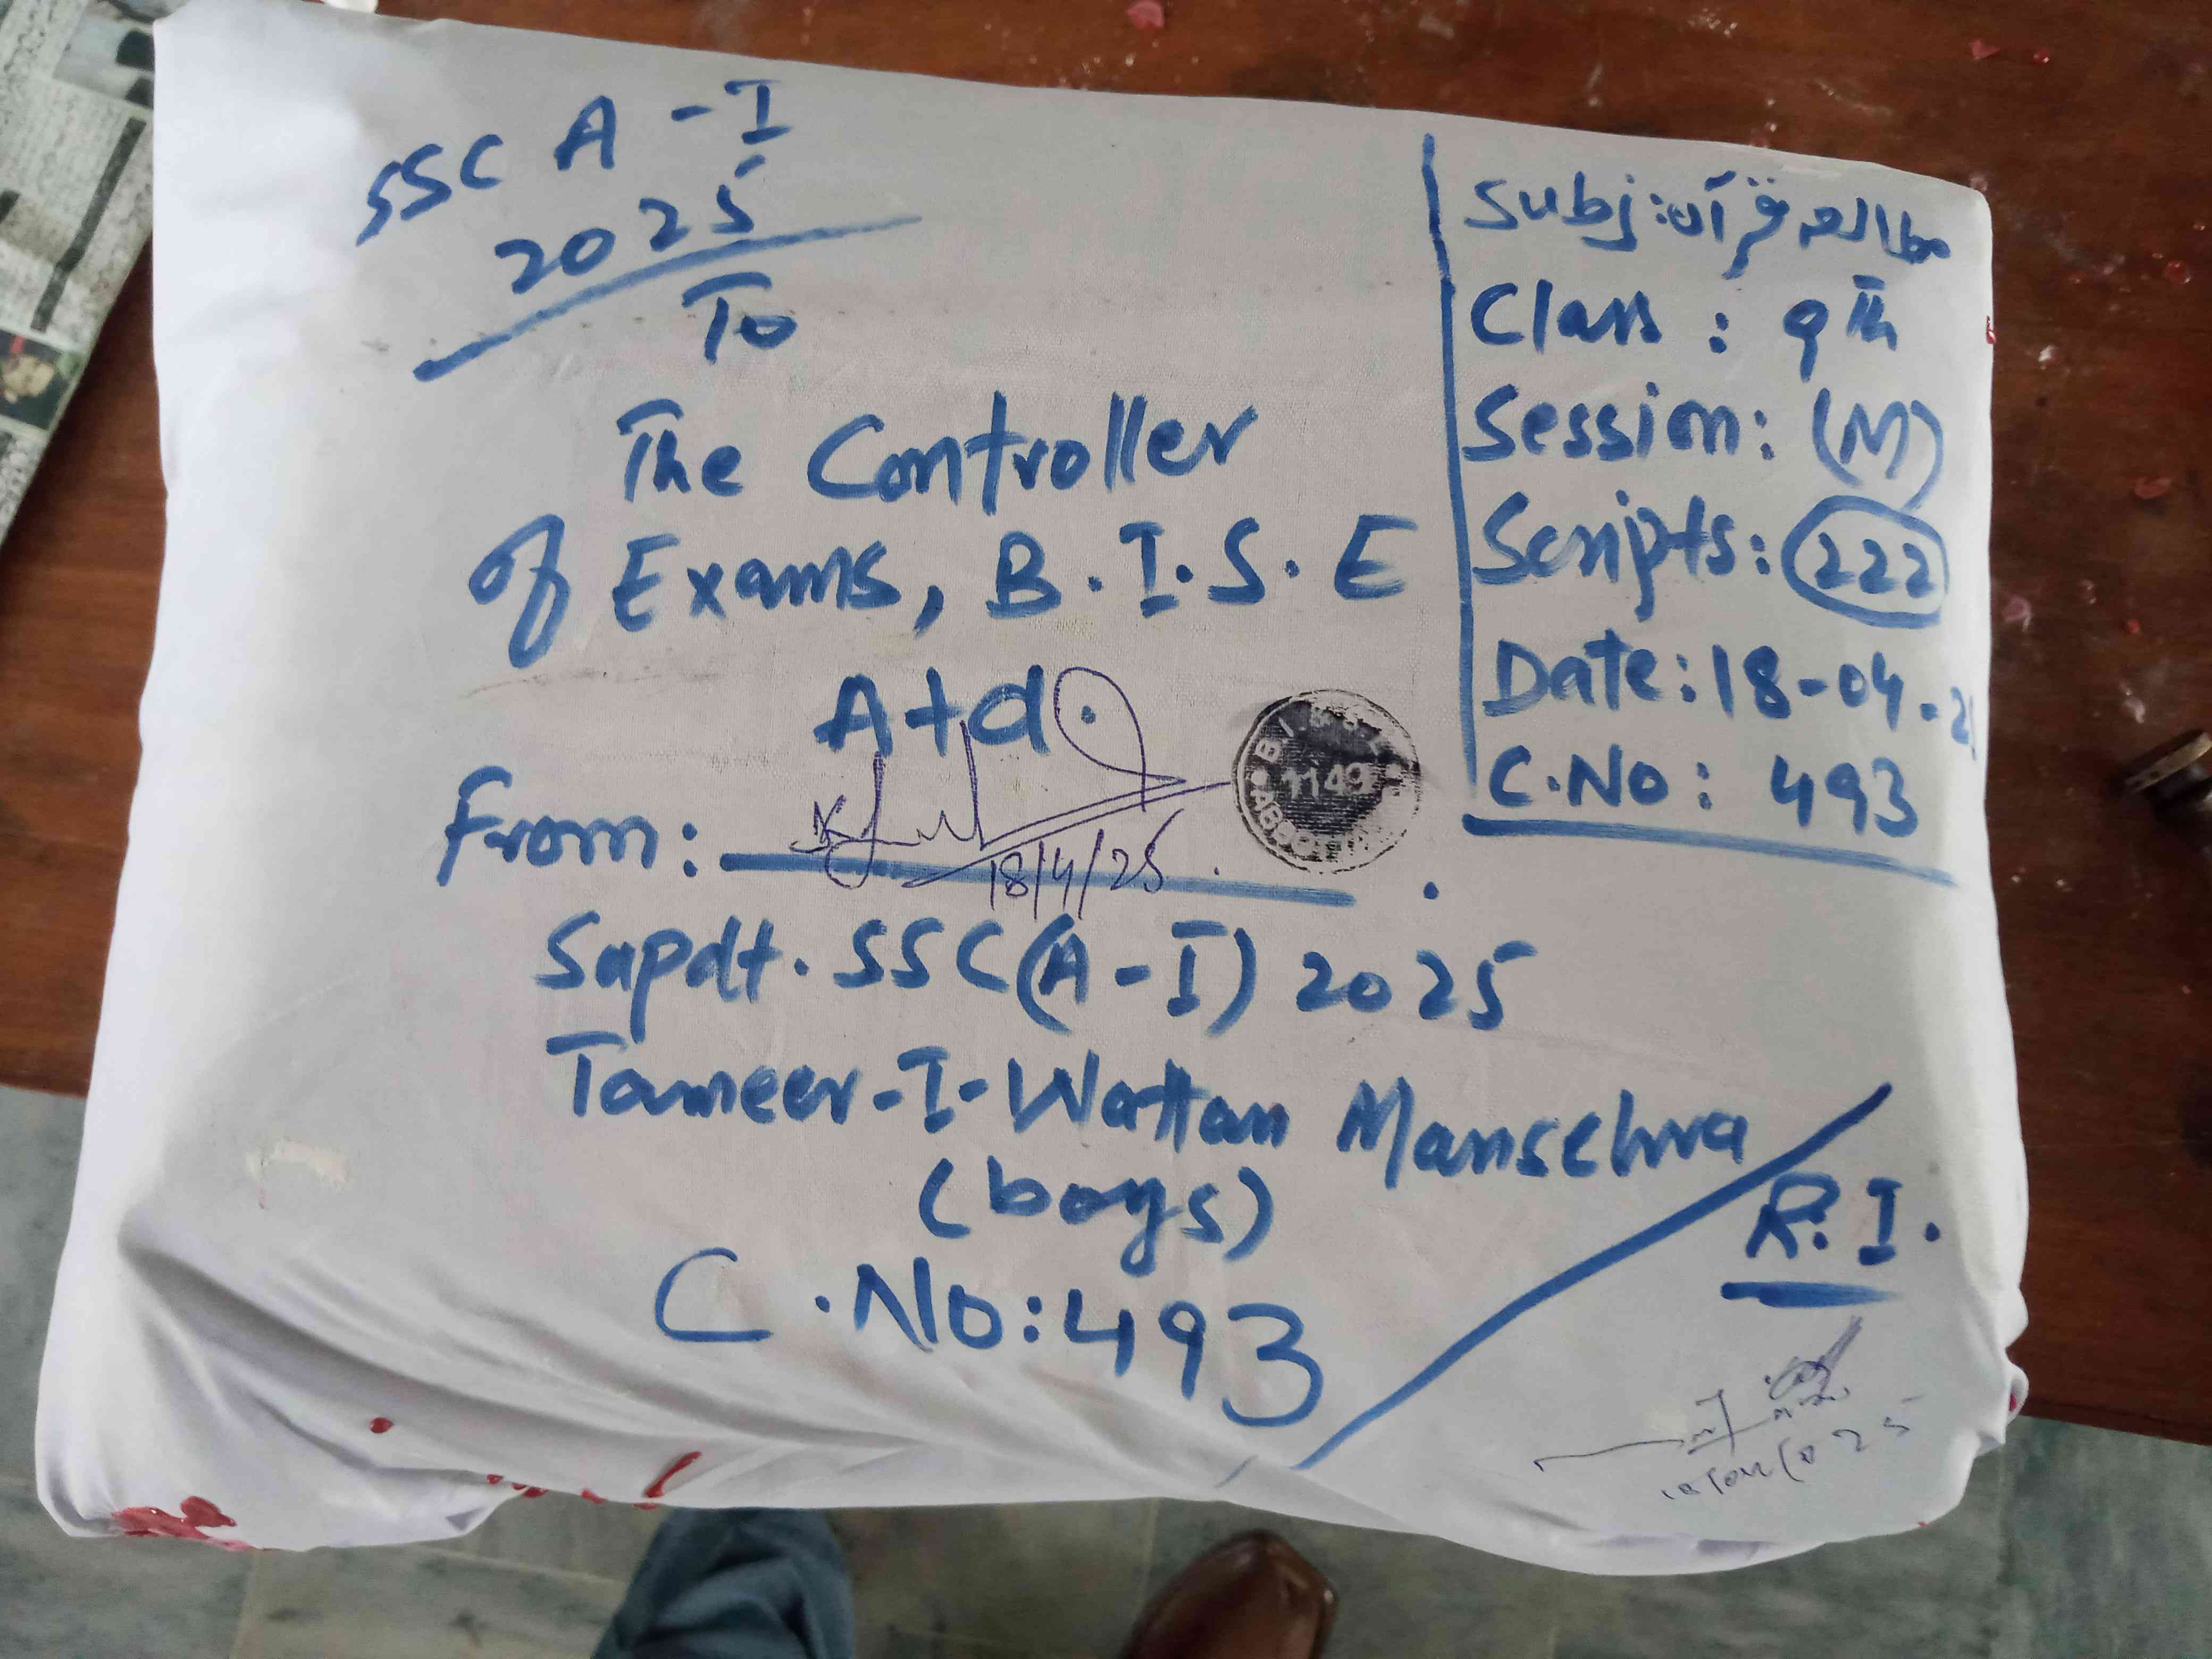 SSC A - I
2025
To
The Controller
of Exams, B.I.S.E
Atd.
From:
18/4/25.
B.I.S.E
1149
Supdt. SSC(A-I) 2025
Tameer-I-Wattan Mansehra
(boys)
C.No:493
Subj: مطالعہ قرآن
Class: 9th
Session: (M)
Scripts: 222
Date: 18-04-25
C.No: 493
R.I.